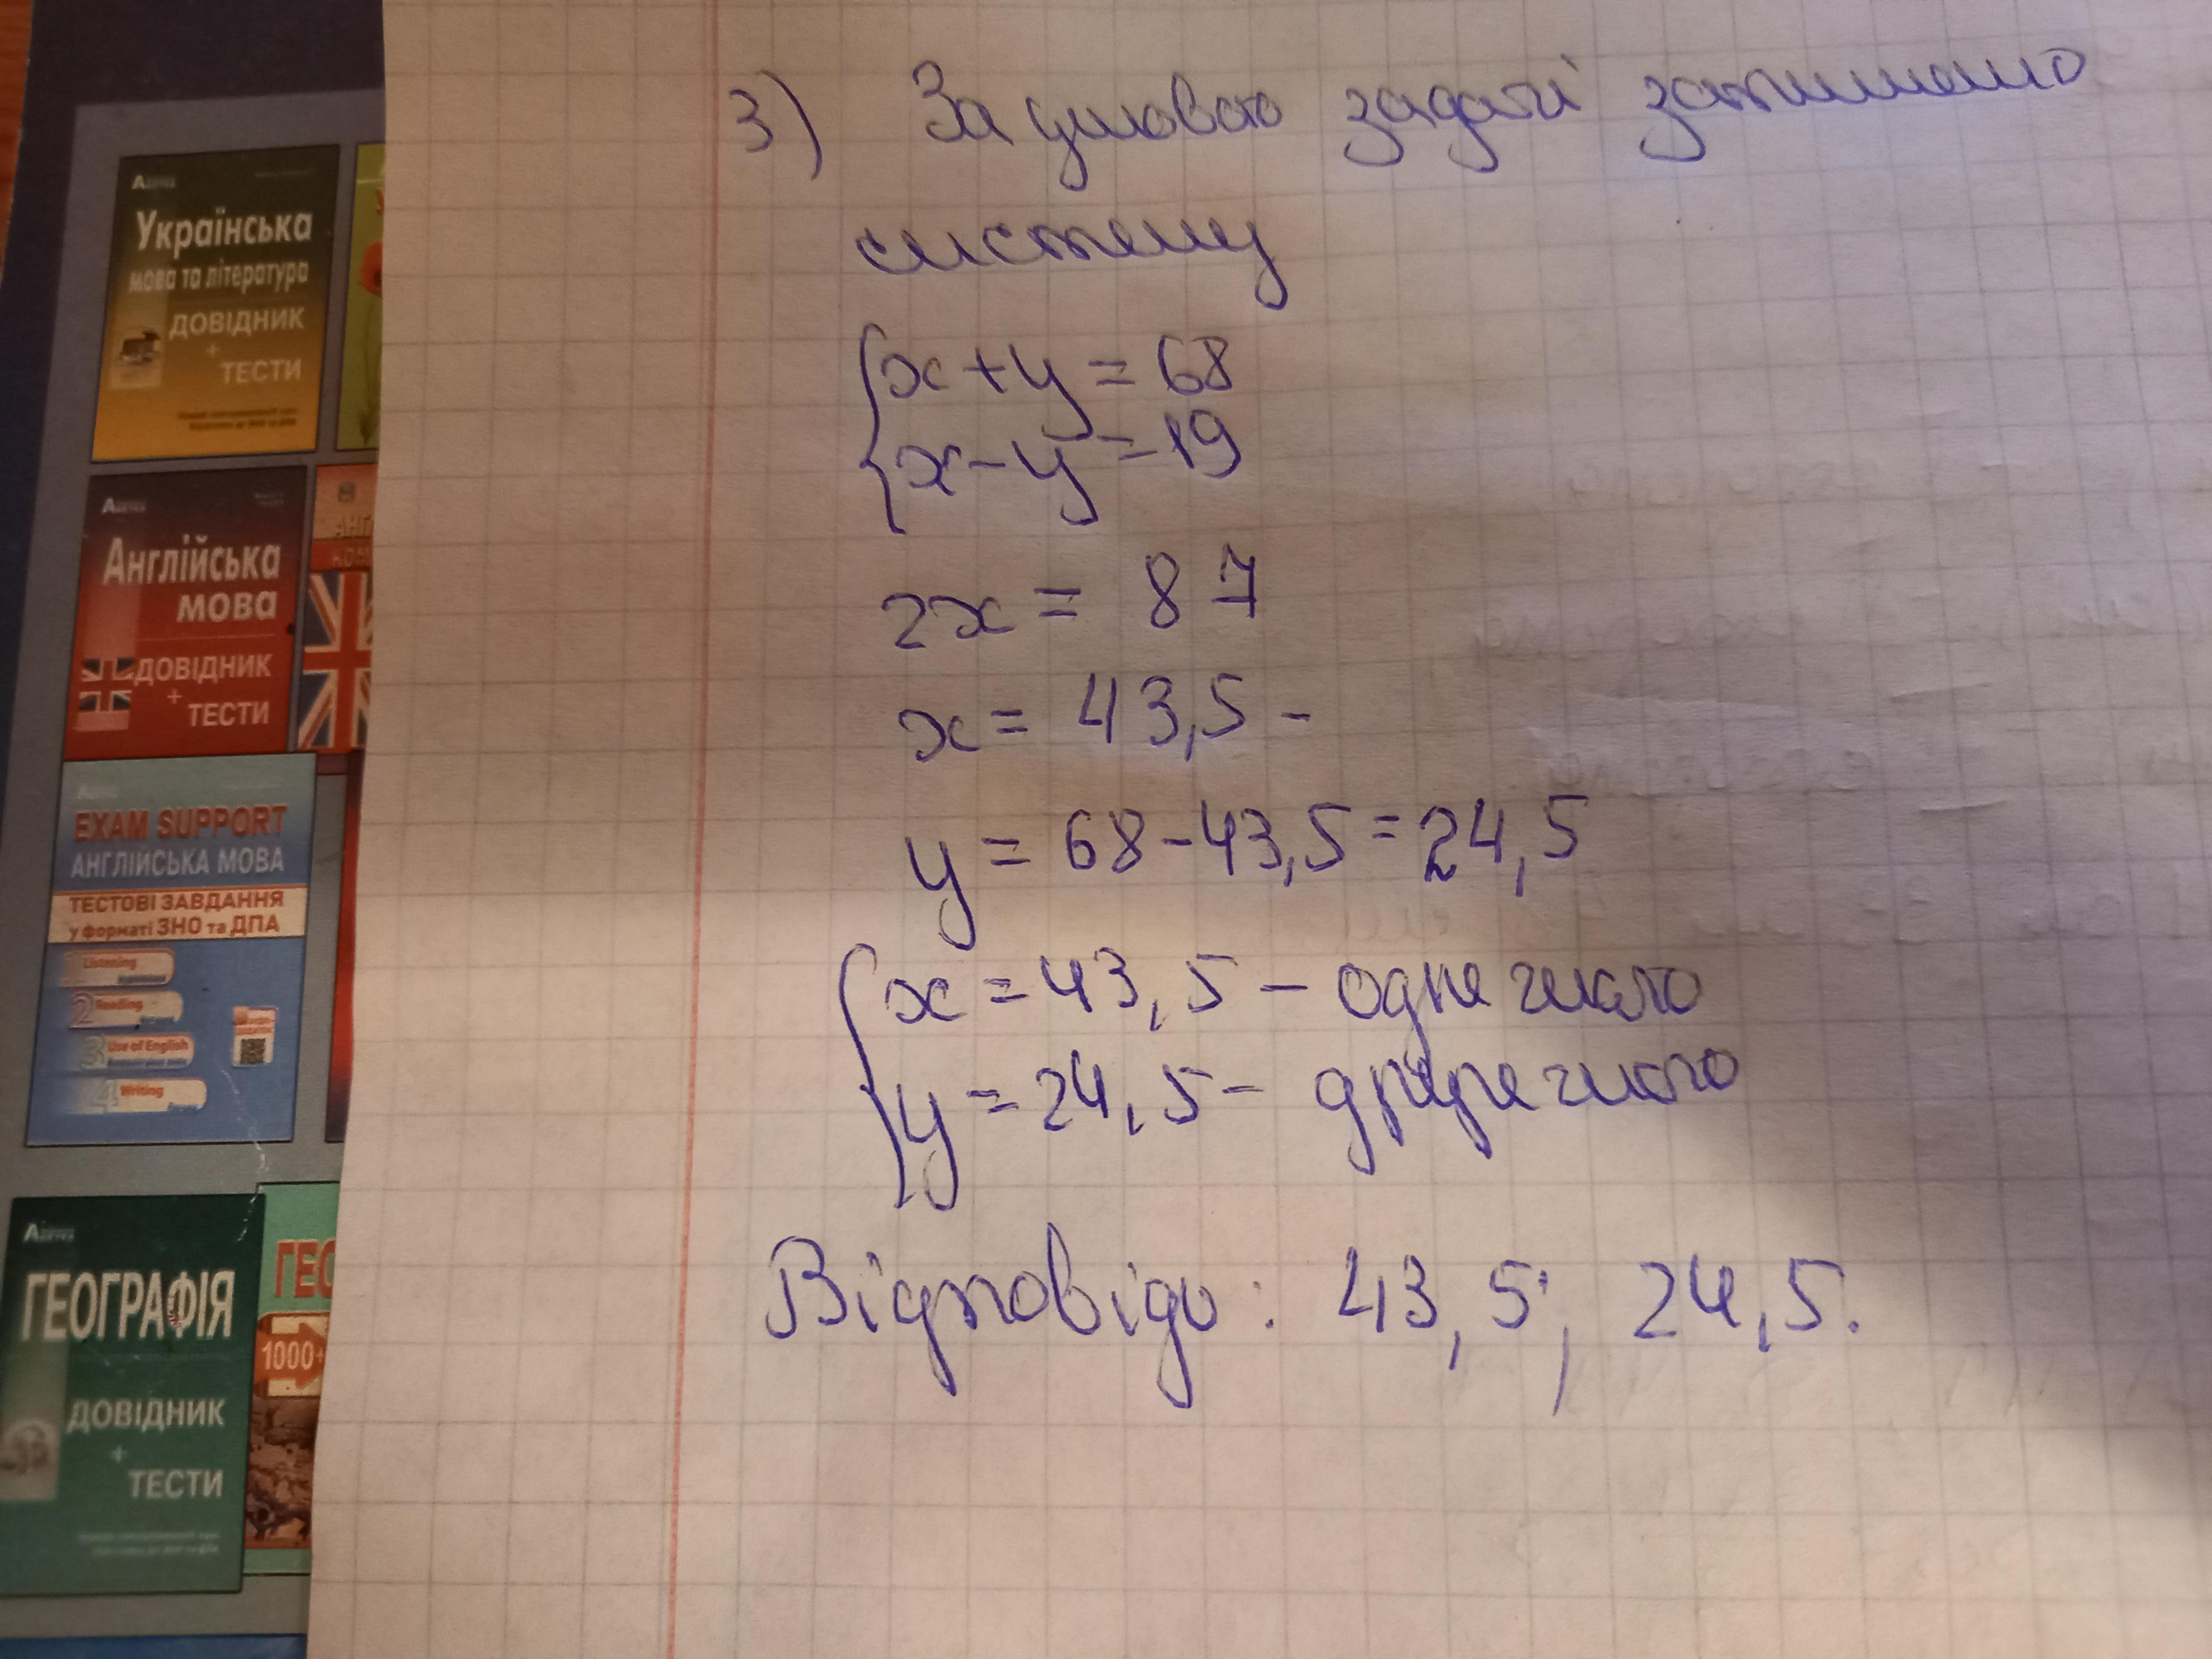 3) За умовою задачі запишемо
систему
x+y=68
x-y=19
2x= 87
x= 43,5 -
y= 68-43,5=24,5
x=43,5 - одне число
y=24,5- друге число
Відповідь: 43,5; 24,5.
Українська
мова та література
ДОВІДНИК
+
ТЕСТИ
Англійська
мова
ДОВІДНИК
+
ТЕСТИ
EXAM SUPPORT
АНГЛІЙСЬКА МОВА
ТЕСТОВІ ЗАВДАННЯ
у форматі ЗНО та ДПА
Listening
2 Reading
3 Use of English
4 Writing
ГЕОГРАФІЯ
ДОВІДНИК
+
ТЕСТИ
ГЕО
1000+